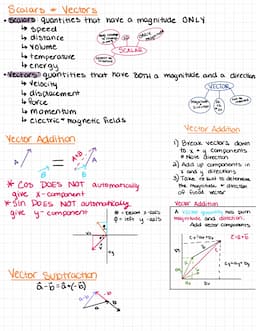 Scalars + Vectors
• Scalars: quantities that have a magnitude ONLY
↳ speed
↳ distance
↳ volume
↳ temperature
↳ energy
SCALAR
• Vectors: quantities that have BOTH a magnitude and a direction
↳ velocity
↳ displacement
↳ force
↳ momentum
↳ electric + magnetic fields
VECTOR
Vector Addition
A
B
=
A+B
A
B
* Cos DOES NOT automatically
give x-component
* Sin DOES NOT automatically
give y-component
Vector Addition
1) Break vectors down
to x + y components
* Note direction
2) Add up components in
x and y directions
3) Take result to determine
the magnitude + direction
of final vector
Vector Addition
A vector quantity has both
magnitude and direction.
Add vector components
Vector Subtraction
a - b = a + (-b)